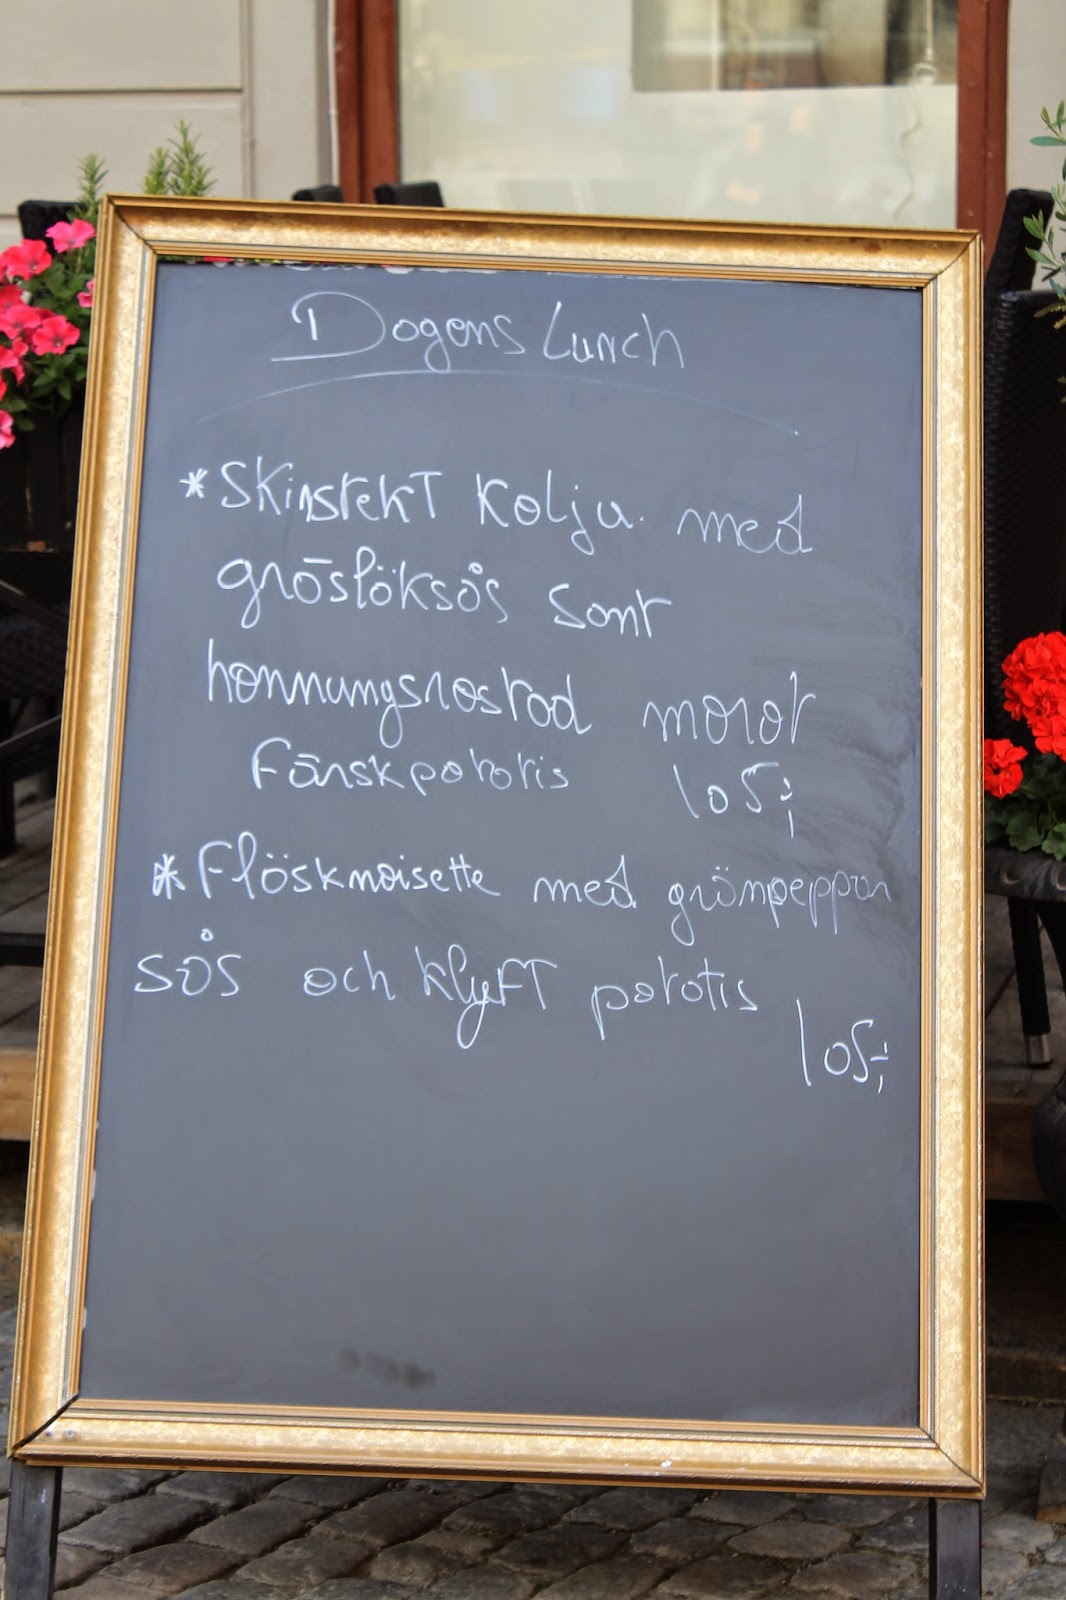 Dagens Lunch
* Skinstekt Kolja med
gräslökssås samt
honnungsrostad morot
Färskpotatis 105:-
* Fläsknoisette med grönpeppar
sås och klyft potatis
105:-